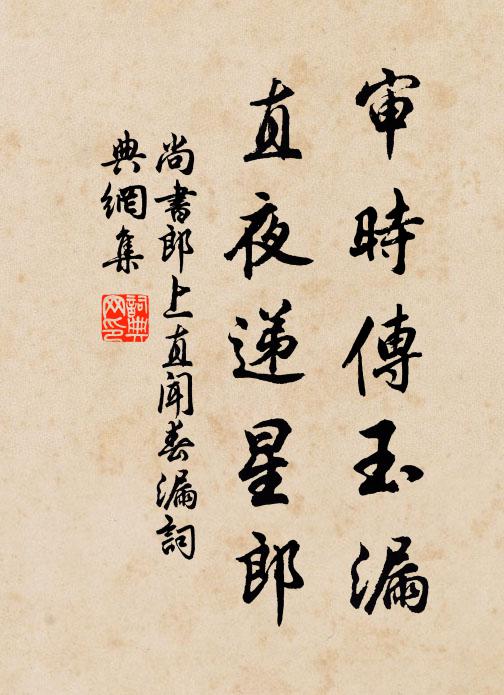 审時傳玉漏
直夜递星郎
尚書郎上直聞春漏詞
典網集
詞典网印